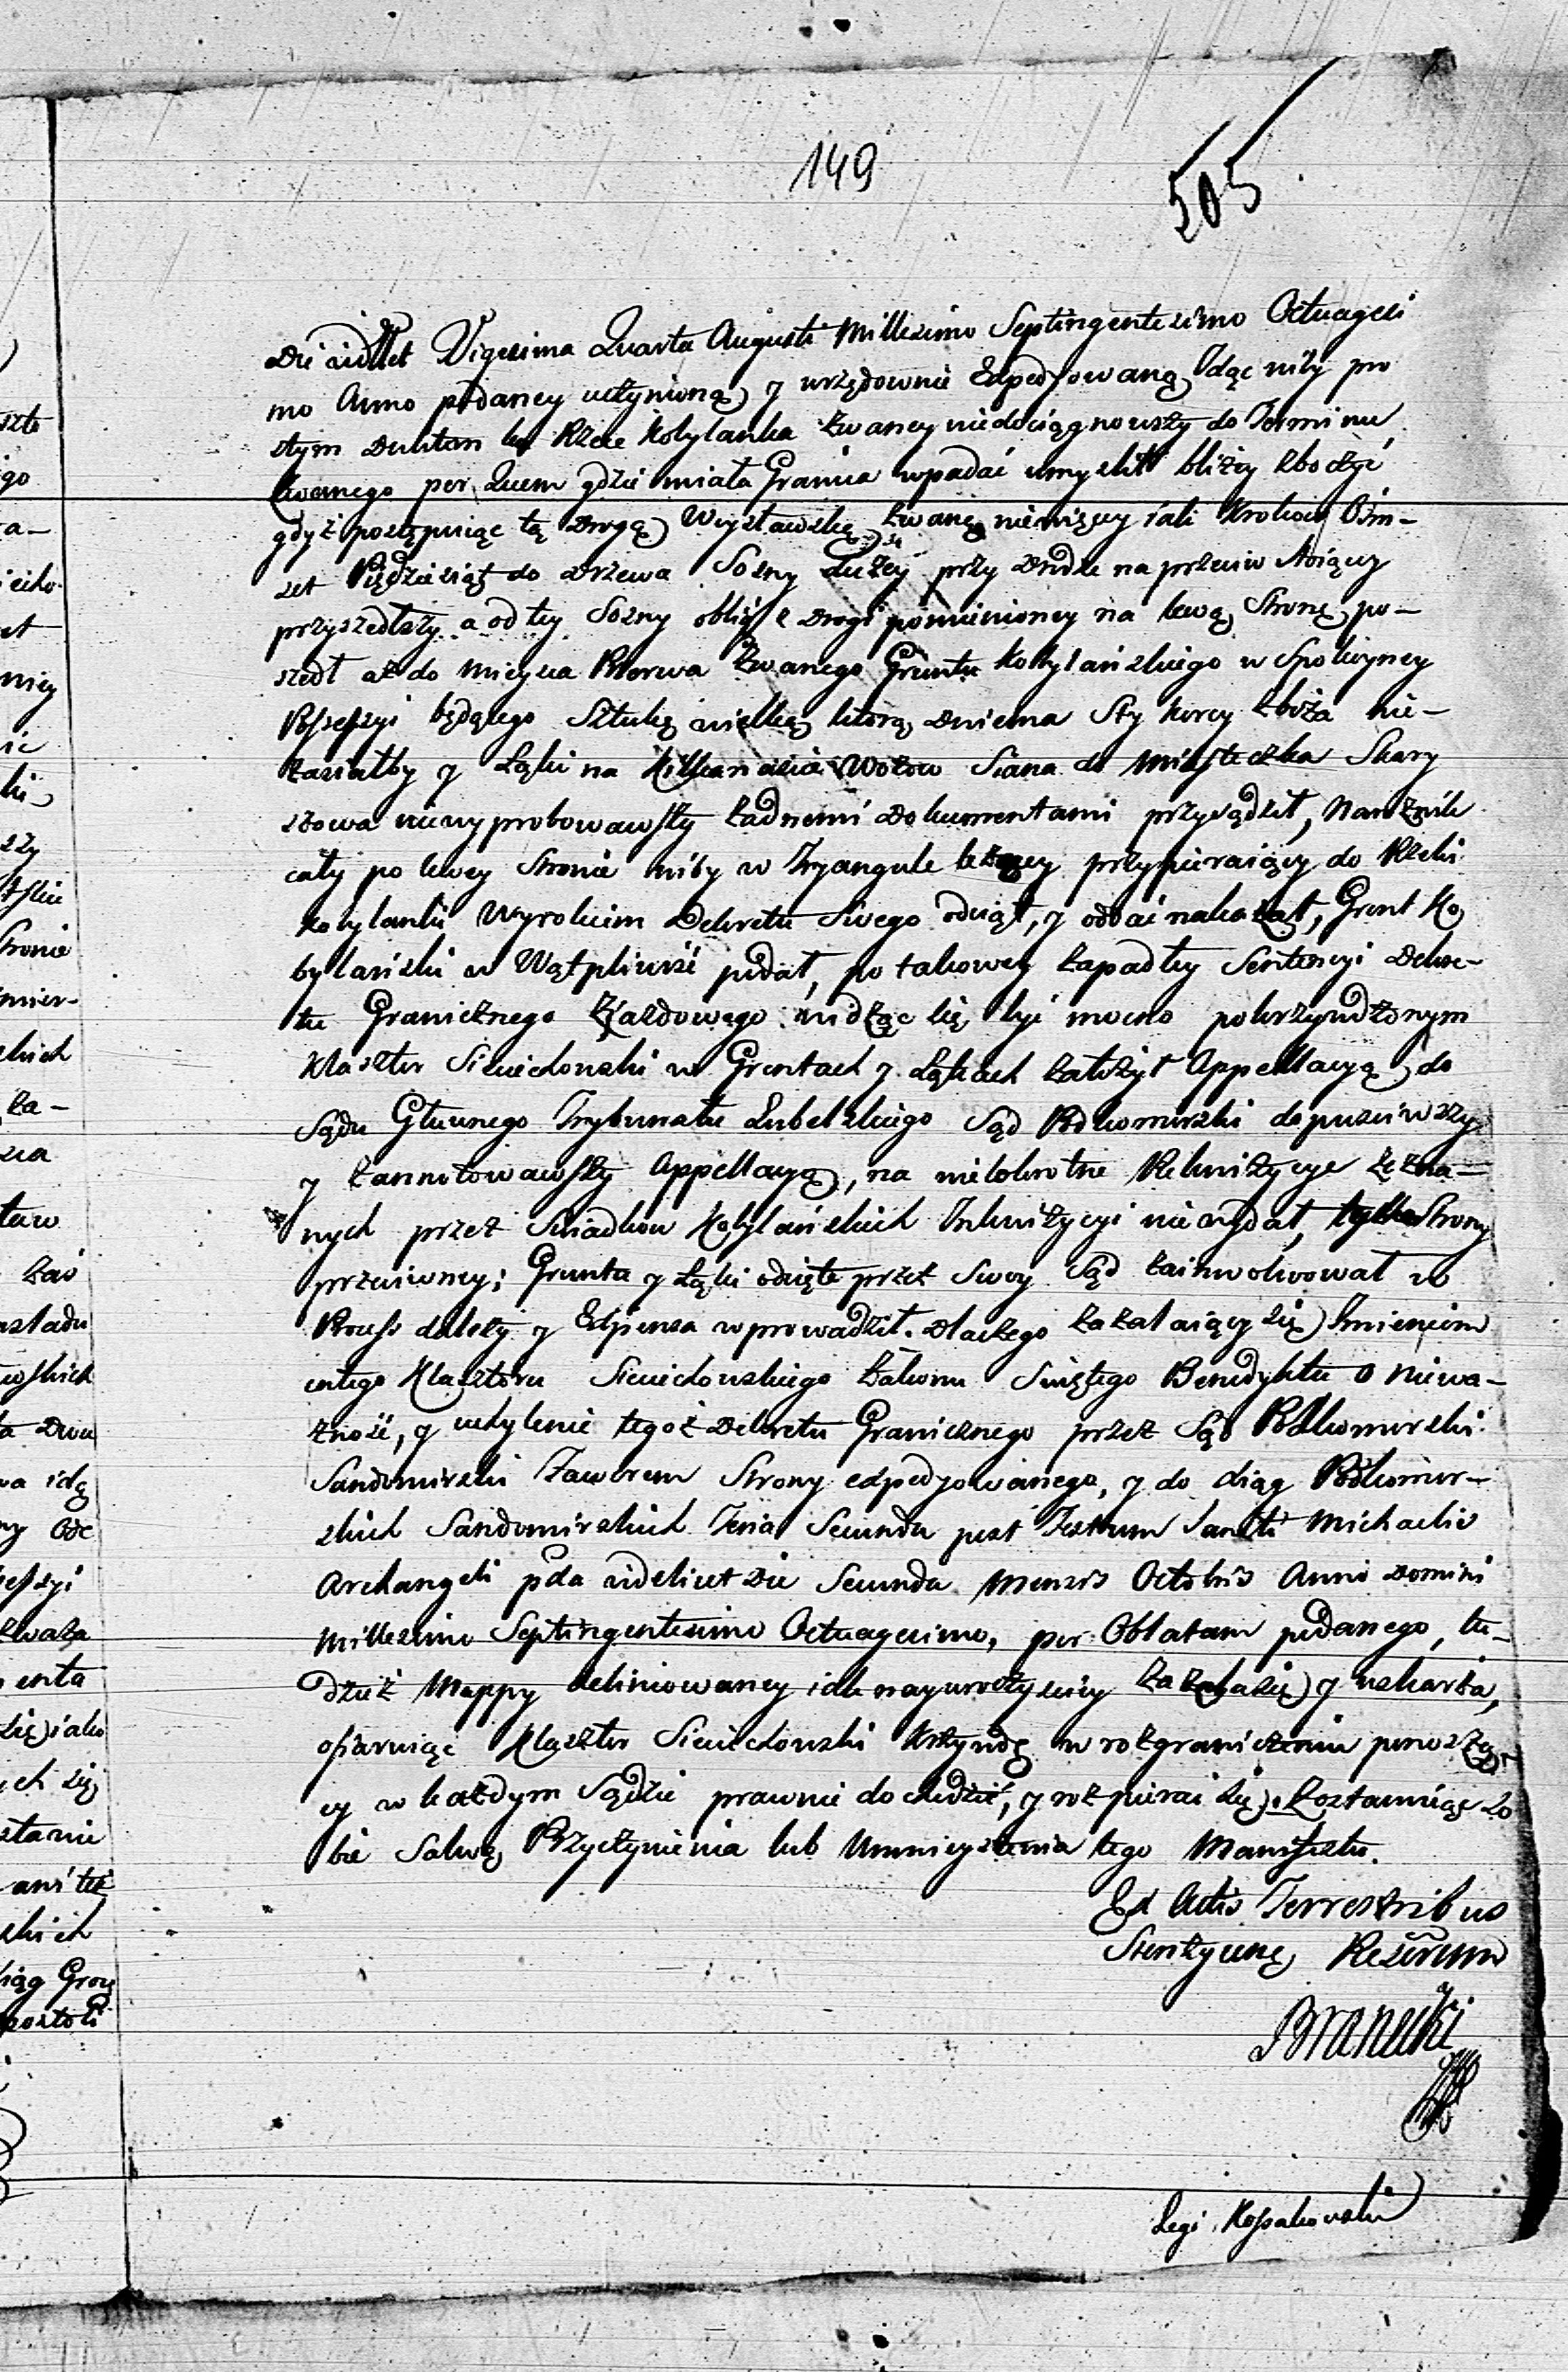 149
505
Die vidlt Vigesima Quarta Augusti Millesimo Septingentesimo Octuagesi
mo Anno podaney uczynioną y urzędownie Expedjowaną Idąc niby pro
stym Duktem ku Rzece Kobylanka zwaney niedociągnowszy do Terminu
zwanego per Quem gdzie miała Granica wpadać umyślił bliży zboczyć
gdyż postępuiąc tą Drogą Wszystawską zwaną niewięcy iak Krokow Ośm-
set Pięćdziesiąt do Drzewa Sosny Dużey przy Drodze na przeciw stoiący
przyszedłszy a od tey Sosny obliż z Drogi pomienioney na lewą Stronę po-
szedł aż do mieysca Rzerwa zwanego Gruntu Kobylańskiego w Spokoyney
Possessyi będącego Sztukę wielką którą Dwiema Sty Korcy zboża nie-
zasiałby y Łąki na Kilkanaście Wołow Siana do Miasteczka Skary
szowa niewyprobowawszy żadnemi Dokumentami przysądził, Narożnik
cały po lewey Stronie niby w Tryangule leżący przypieraiący do Rzeki
Kobylanki Wyrokiem Dekretu Swego odciął, y oddać nakazał, Grunt Ko
bylański w Wątpliwość podał, po takowey zapadłey Sentencyi Dekre-
tu Granicznego Zjazdowego widząc się być mocno pokrzywdzonym
Klasztor Sieciechowski w Gruntach y Łąkach założył Appellacyą do
Sądu Głownego Trybunału Lubelskiego Sąd Podkomorski dopuściwszy
y zannotowawszy Appellacyą, na wielokrotne Rekwizycye zezna-
nych przez Swiadkow Kobylańskich Inkwizycyi nie wydał, tylko Strony
przeciwney; Grunta y Łąki odcięte przez Swoy Sąd zainwolwował w
Process dalszy y Expensa wprowadził. Dlaczego zażalaiący się Imieniem
całego Klasztoru Sieciechowskiego Zakonu Swiętego Benedykta o niewa-
żność, y uchylenie tegoż Dekretu Granicznego przez Sąd Podkomorski
Sandomirski Faworem Strony expedyowanego, y do Xiąg Podkomor-
skich Sandomirskich Feria Secunda post Festum Sancti Michaelis
Archangeli pda videlicet Die Secunda Mensis Octobris Anno Domini
Millesimo Septingentesimo Octuagesimo, per Oblatam podanego, tu-
dzież Mappy delineowaney iak nayuroczyściey zażala się y uskarża,
ofiaruiąc Klasztor Sieciechowski Krzywdę w rozgraniczeniu ponoszą-
cy w każdym Sądzie prawnie dochodzić, y rozpierać się. Zostawuiąc so
bie Salwę Przyczynienia lub Umnieyszenia tego Manifestu.
Ex Actis Terrestribus
Stenzycens Rezerum
Branecki
Legi Kossakowski